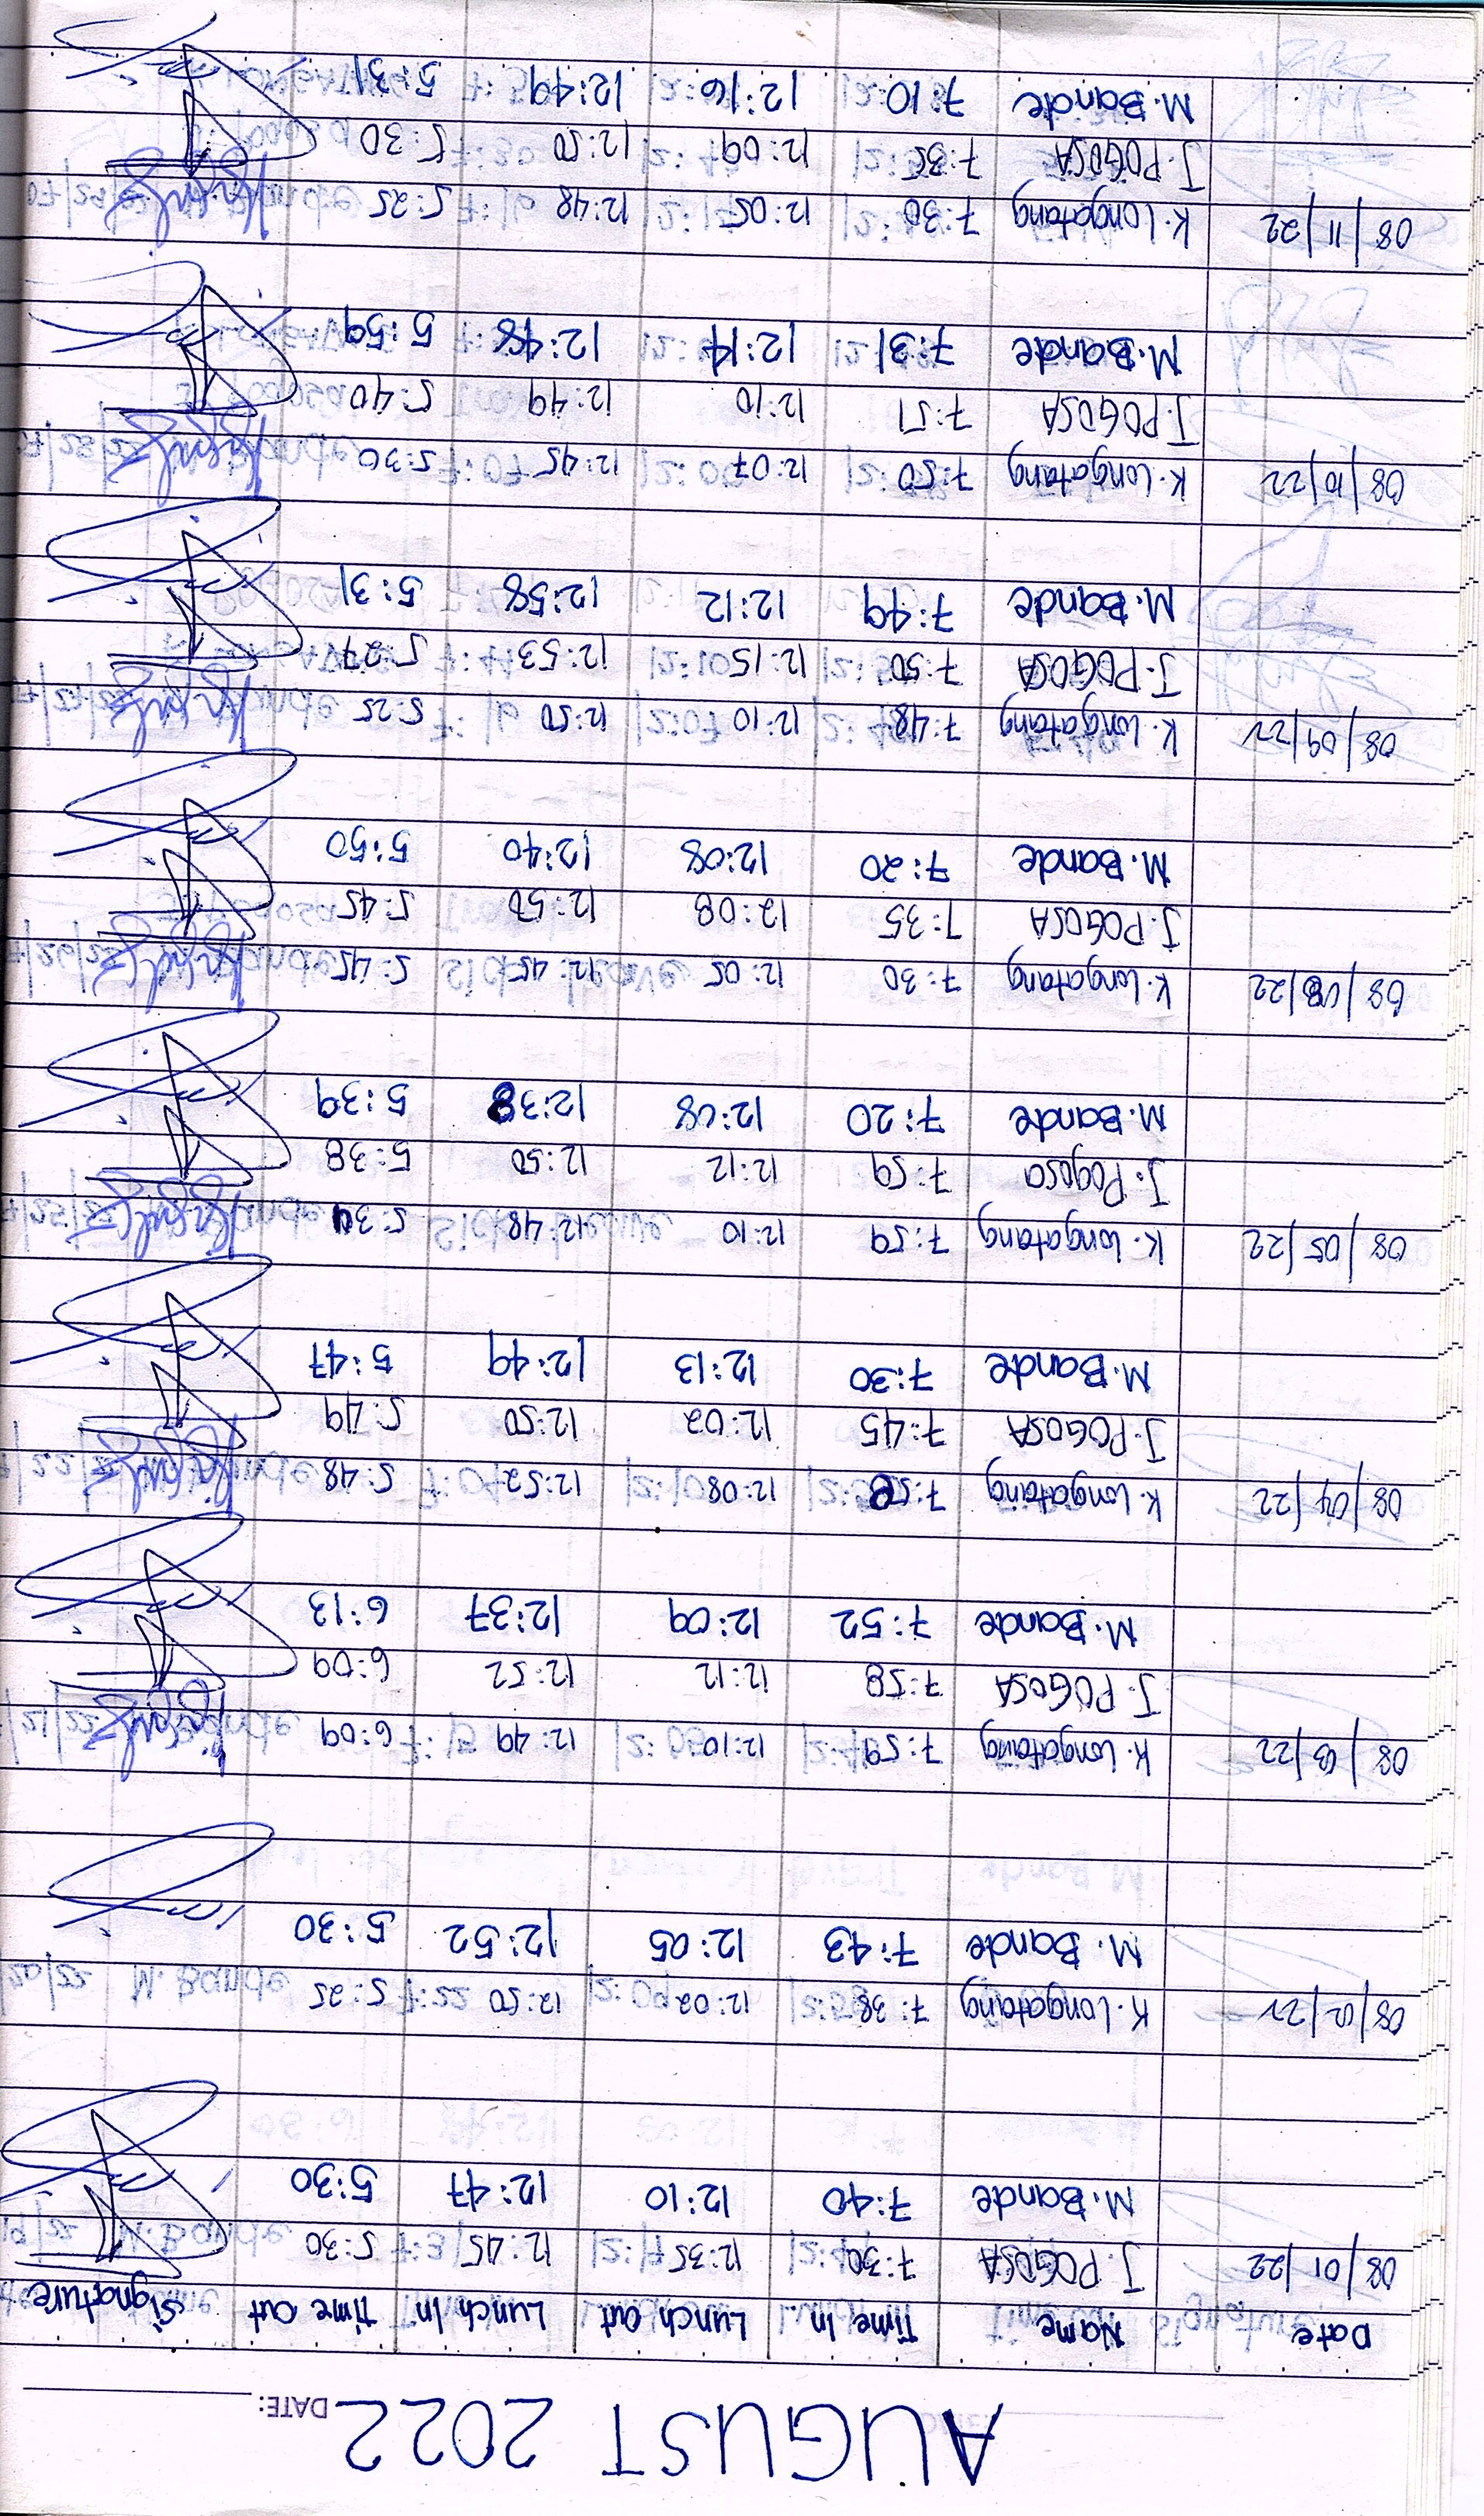 AUGUST 2022 DATE:
Date Name Time In Lunch out Lunch In Time out Signature
08/01/22 J. POGOSA 7:30 12:35 12:45 5:30
M. Bande 7:40 12:10 12:47 5:30
08/02/22 K. Longataing 7:38 12:02 12:50 5:25
M. Bande 7:43 12:05 12:52 5:30
08/03/22 K. Longataing 7:59 12:10 12:49 6:09
J. POGOSA 7:58 12:12 12:52 6:09
M. Bande 7:52 12:09 12:37 6:13
08/04/22 K. Longataing 7:58 12:08 12:52 5:48
J. POGOSA 7:45 12:02 12:50 5:49
M. Bande 7:30 12:13 12:49 5:47
08/05/22 K. Longatang 7:59 12:10 12:48 5:34
J. Pogosa 7:59 12:12 12:50 5:38
M. Bande 7:20 12:08 12:38 5:39
08/08/22 K. Longatang 7:30 12:05 12:45 5:45
J. POGOSA 7:35 12:08 12:50 5:45
M. Bande 7:20 12:08 12:40 5:50
08/09/22 K. Longatang 7:48 12:10 12:50 5:25
J. POGOSA 7:50 12:15 12:53 5:27
M. Bande 7:49 12:12 12:58 5:31
08/10/22 K. Longatang 7:50 12:07 12:45 5:30
J. POGOSA 7:51 12:10 12:49 5:40
M. Bande 7:31 12:14 12:48 5:59
08/11/22 K. Longatang 7:30 12:05 12:48 5:25
J. POGOSA 7:35 12:09 12:50 5:30
M. Bande 7:10 12:16 12:49 5:31